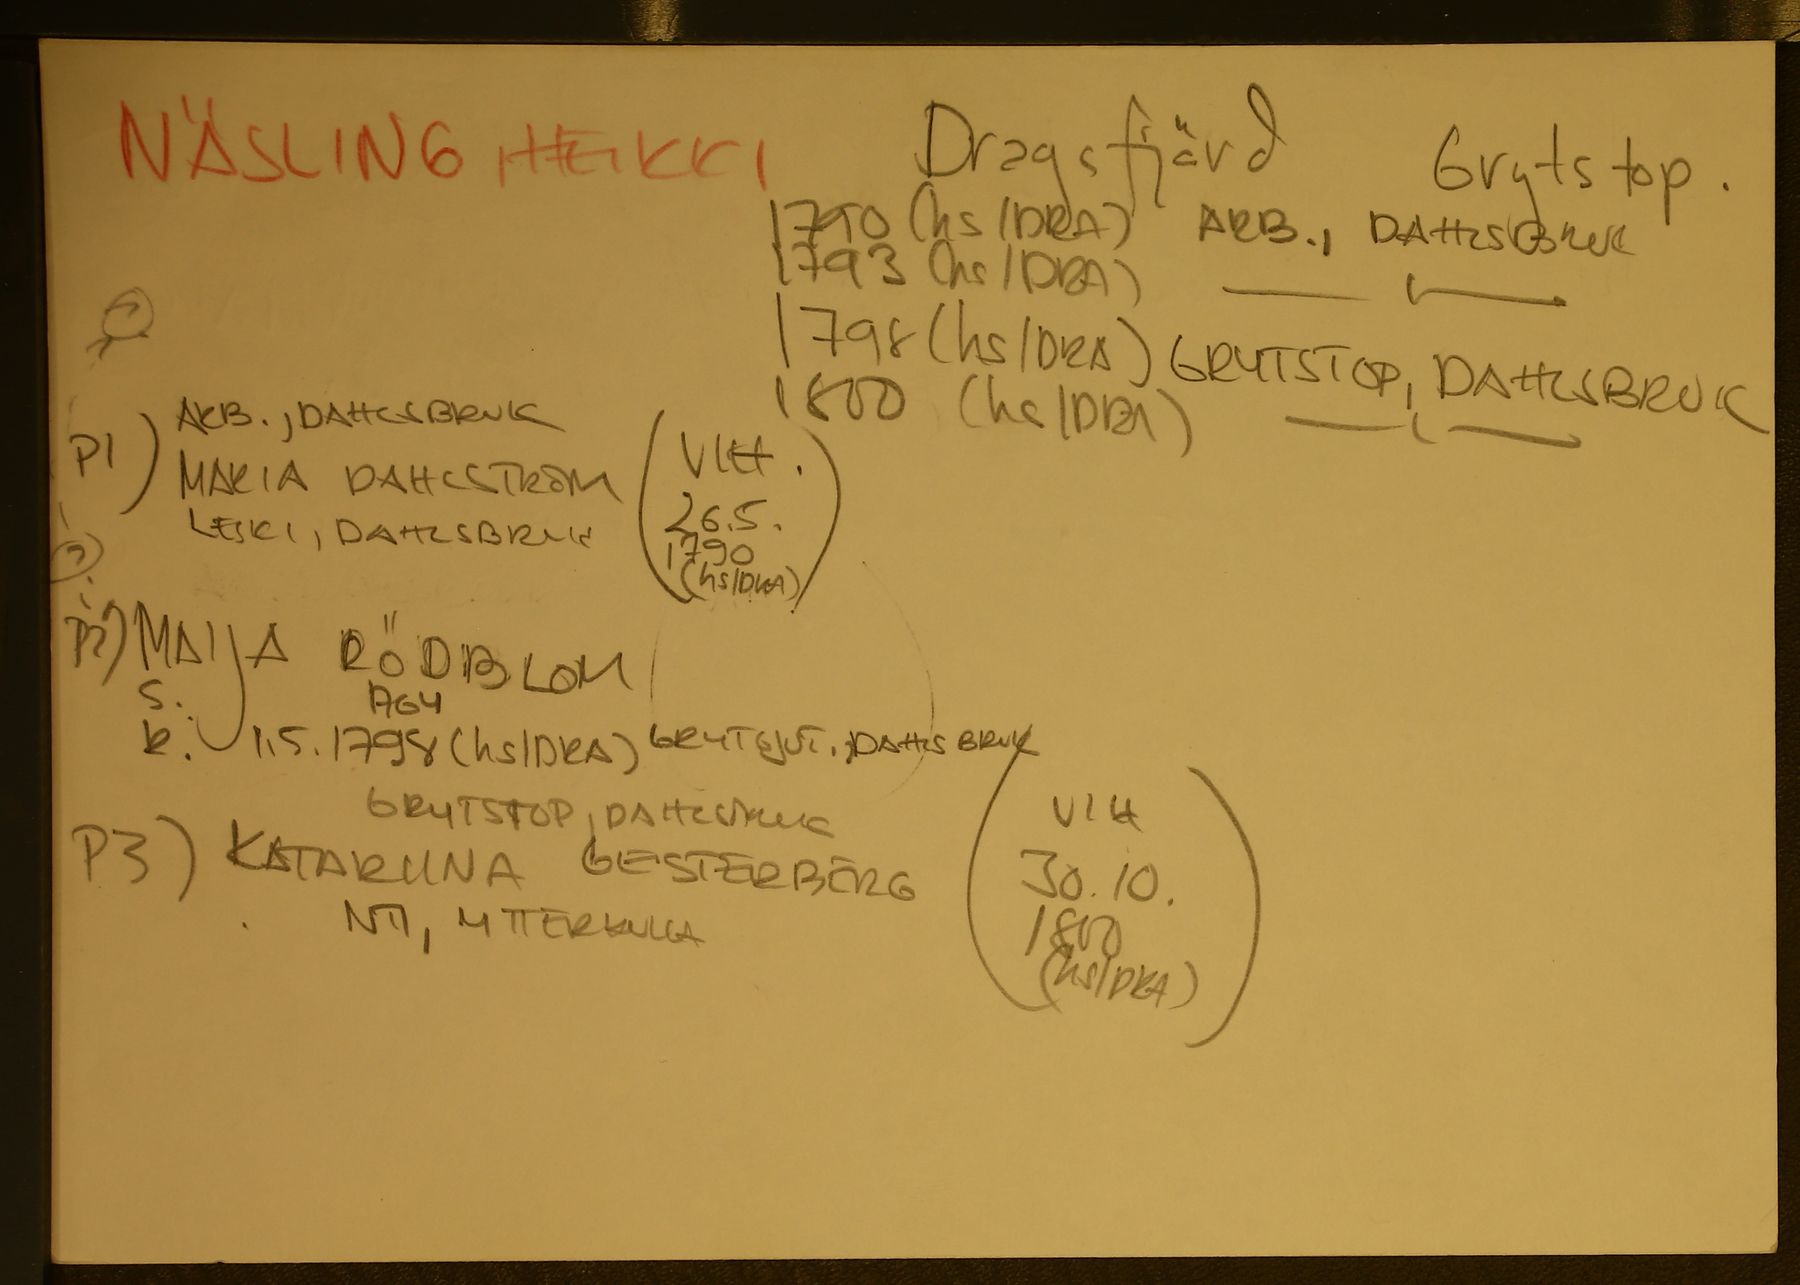 NÄSLING, HEIKKI
Dragsfjärd Grytstop.
1790 (hs/DRA) ARB., DAHLSBRUK
1793 (hs/DRA) — " —
1798 (hs/DRA) GRYTSTOP, DAHLSBRUK
1800 (hs/DRA) — " —
P1) ARB., DAHLSBRUK
MARIA DAHLSTRÖM
LESKI, DAHLSBRUK
(VIH.
26.5.
1790
(hs/DRA))
P2) MAIJA RÖDBLOM
S. 1764
K. 1.5.1798 (hs/DRA) GRYTGJUT., DAHLSBRUK
GRYTSTOP, DAHLSBRUK
P3) KATARIINA GESTERBERG
NTI, YTTERKULLA
(VIH
30.10.
1800
(hs/DRA))